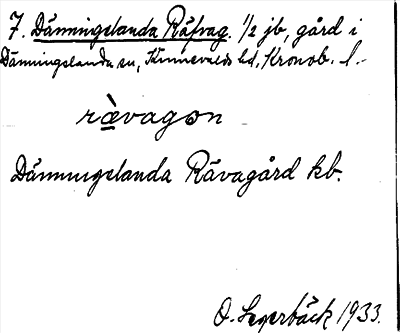 7. Dänningelanda Räfvag. 1/2 jb, gård i
Dänningelanda sn, Kinnevalds hd, Kronob. l.
rä̀vagɷn
Dänningelanda Rävagård kb.
O. Segerbäck 1933.